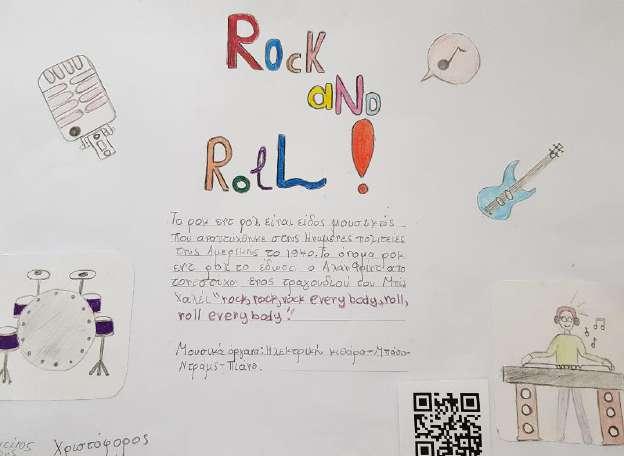 ROCK
aND
RolL !
Το ροκ εντ ρολ είναι είδος μουσικής
που αναπτύχθηκε στης Ηνωμένες πολιτείες
της Αμερικής το 1940. Το όνομα ροκ
εντ ρολ το έδωσε ο Άλαν Φριντ απο
τον στίχο ενος τραγουδιού του Μπιλ
Χάλεϊ "rock, rock, rock every body, roll,
roll every body".
Μουσικά όργανα: Ηλεκτρική κιθάρα-Μπάσο-
Ντραμς-Πιάνο.
Χριστόφορος